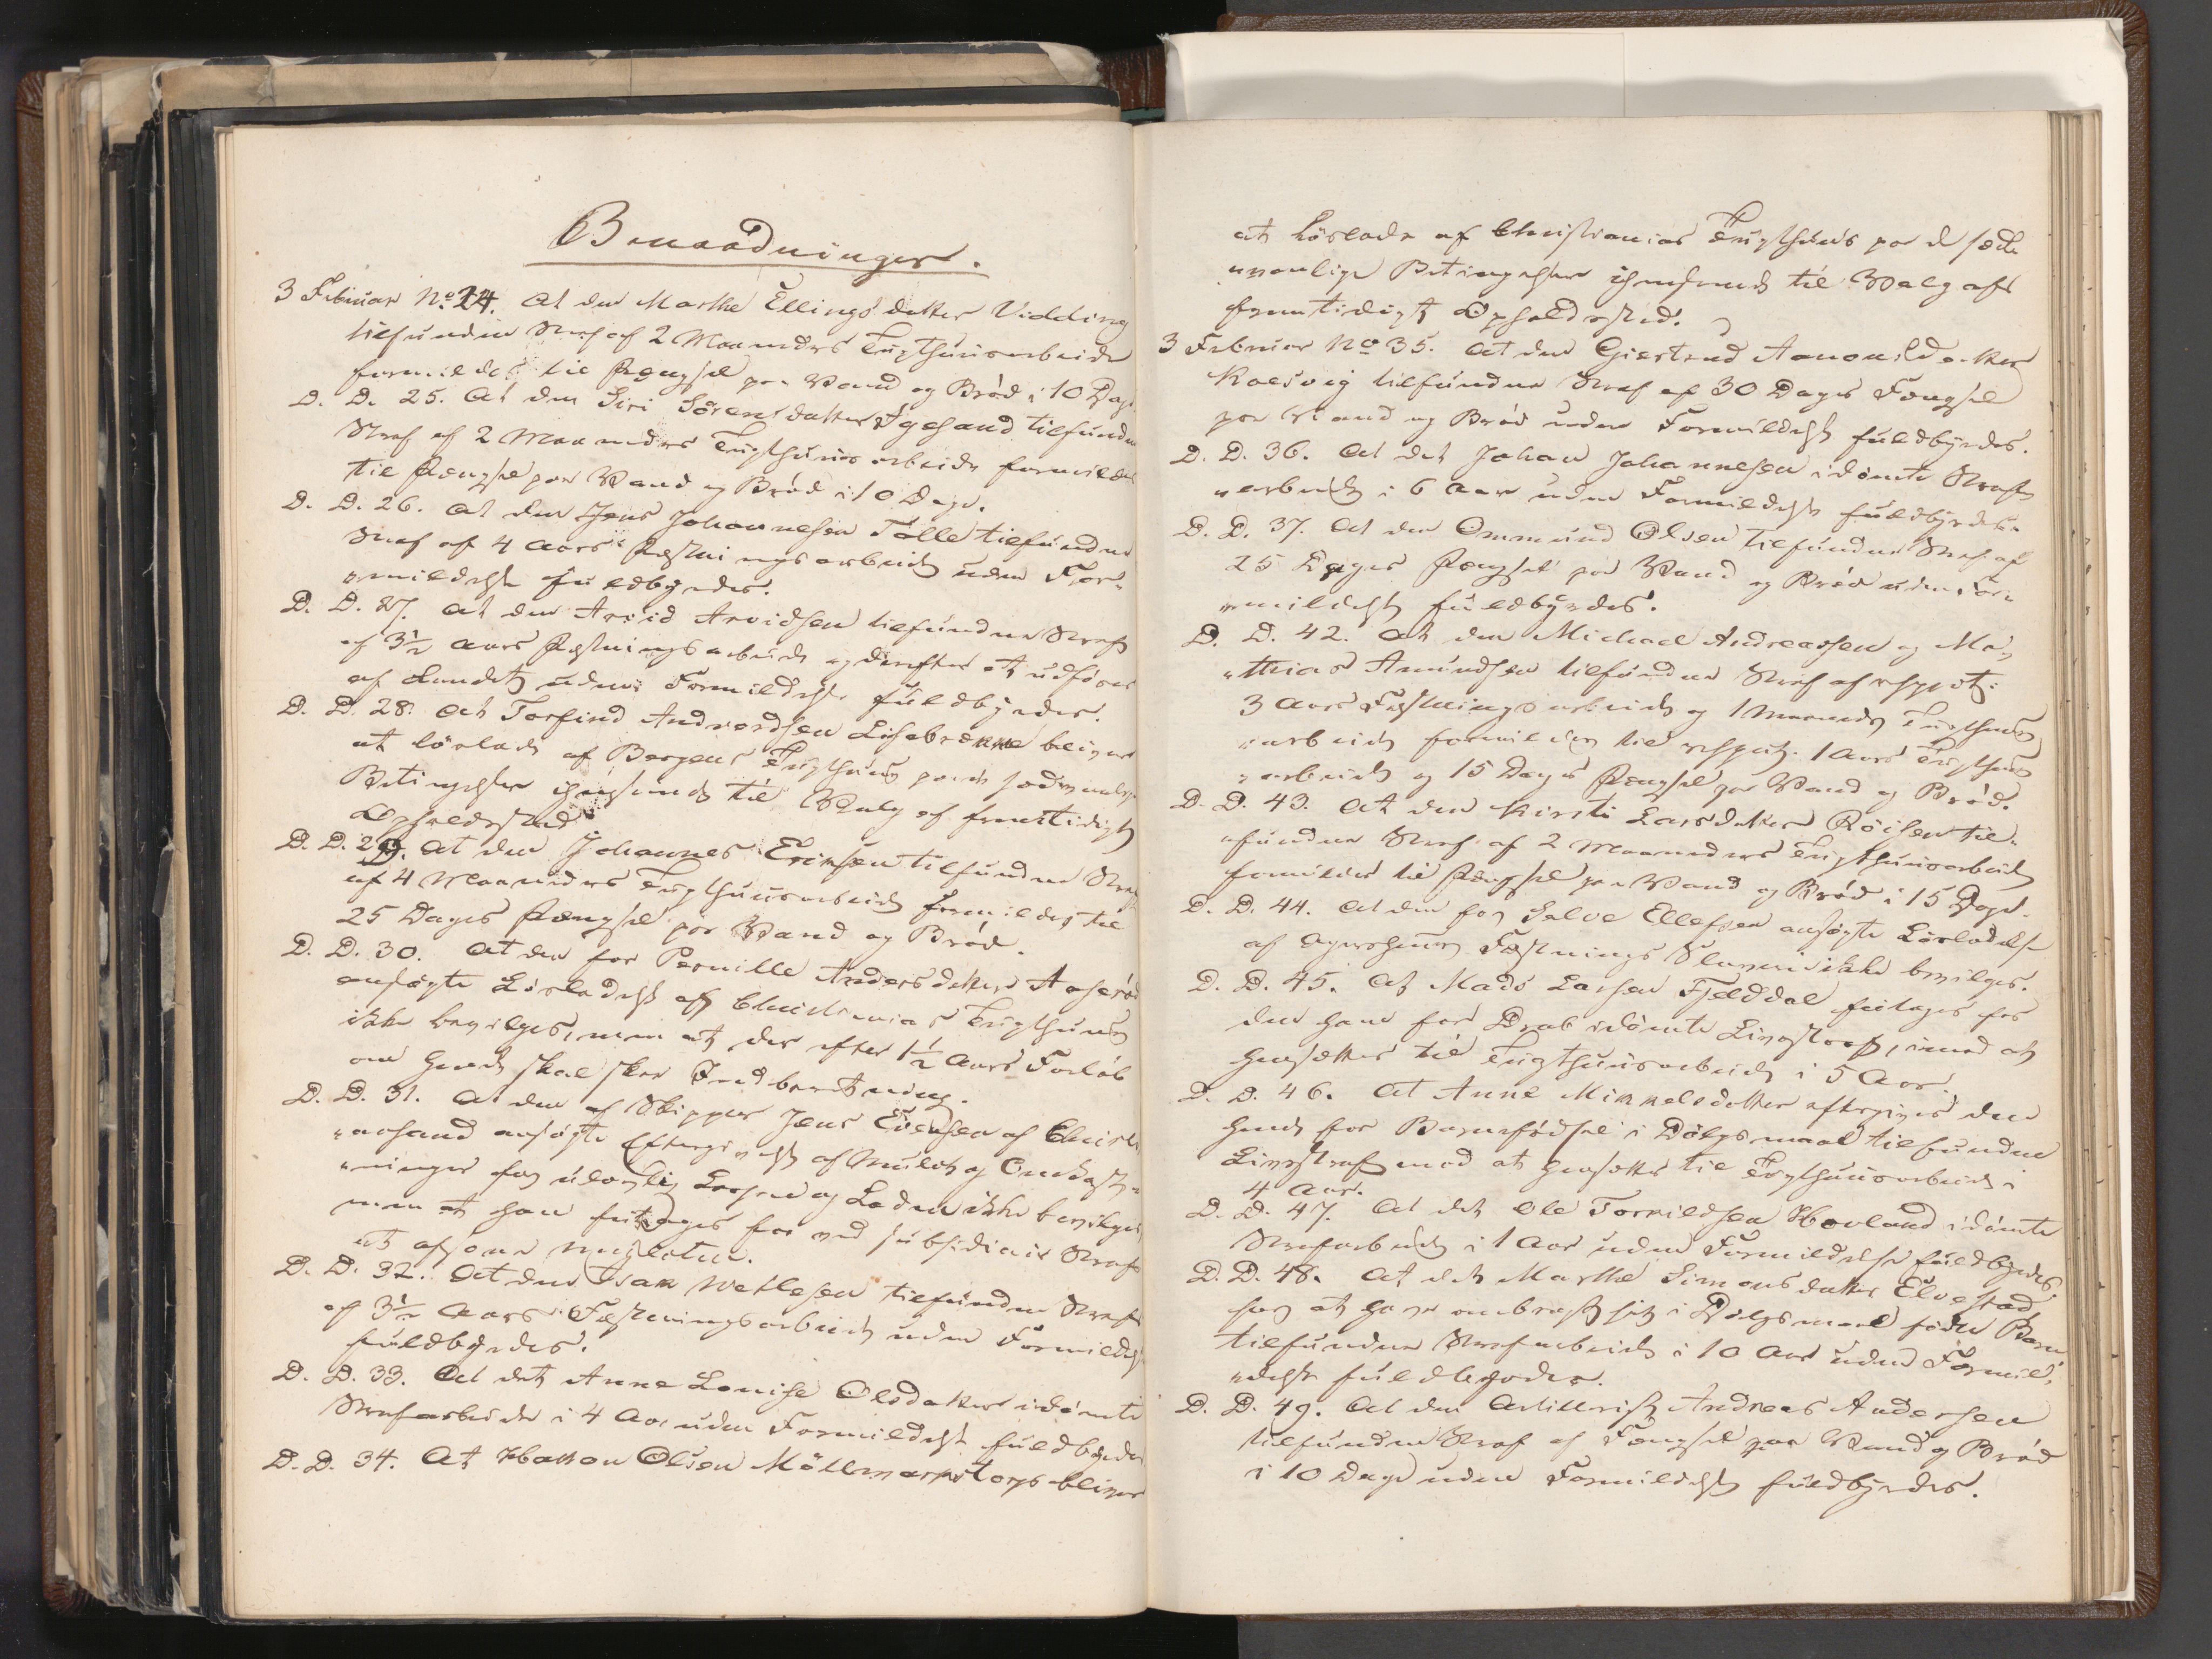 Benaadninger.
3 Februar No. 24. At den Marthe Ellingsdatter Vidding
tilfundne Straf af 2 Maaneders Tugthuusarbeide
formildes til Fængsel paa Vand og Brød i 10 Dage.
D. D. 25. At den Siri Sörensdatter tilfundne
Straf af 2 Maaneders Tugthuusarbeide formildes
til Fængsel paa Vand og Brød i 10 Dage.
D. D. 26. At den Jens Johannesen Tölle tilfundne
Straf af 4 Aars Fæstningsarbeide uden For-
"mildelse fuldbyrdes.
D. D. 27. At den Arvid Arvidsen tilfundne Straf
af 3½ Aars Fæstningsarbeide og derefter at udföres
af Landet uden Formildelse fuldbyrdes.
D. D. 28. At Torfind Andreassen Lisebrække bliver
at löslade af Bergens Tugthuus paa de sædvanlige
Betingelser ihenseende til Valg af fremtidigt
Opholdssted.
D. D. 29. At den Johannes Eriksen tilfundne Straf
af 4 Maaneders Tugthuusarbeide formildes til
25 Dages Fængsel paa Vand og Brød.
D. D. 30. At den for Pernille Andersdatter Aaseröd
ansögte Lösladelse af Christianias Tugthuus
ikke bevilges, men at der efter 1½ Aars Forlöb
om hende skal skee Indberetning.
D. D. 31. At den af Skipper Jens Evensen af Christi-
"ansand ansögte Eftergivelse af Mulct og Omkost-
"ninger for ulovlig Lossen og Laden ikke bevilges
men at han fritages for ved subsidiair Straf
at afsone Mulcten.
D. D. 32. At den Isak Wetlesen tilfundne Straf
af 3½ Aars Fæstningsarbeide uden Formildelse
fuldbyrdes.
D. D. 33. At det Anne Louise Olsdatter idömte
Strafarbeide i 4 Aar uden Formildelse fuldbyrdes
D. D. 34. At Haakon Olsen Möllemarkstorp bliver
at löslade af Christianias Tugthuus paa de sæd-
"vanlige Betingelser ihenseende til Valg af
fremtidigt Opholdssted.
3 Februar No 35. At den Giertrud Aanonsdatter
Roesvig tilfundne Straf af 30 Dages Fængsel
paa Vand og Brød uden Formildelse fuldbyrdes.
D. D. 36. At det Johan Johannesen idömte Straf-
"arbeide i 6 Aar uden Formildelse fuldbyrdes.
D. D. 37. At den Ommund Olsen tilfundne Straf af
25 Dages Fængsel paa Vand og Brød uden For-
"mildelse fuldbyrdes.
D. D. 42. At den Michael Andreassen og Ma-
"thias Amundsen tilfundne Straf af respect:
3 Aars Fæstningsarbeide og 1 Maaneds Tugthuus-
"arbeide formildes til respect. 1 Aars Tugthuus-
"arbeide og 15 Dages Fængsel paa Vand og Brød.
D. D. 43. At den Kirsti Larsdatter Röisen til-
"fundne Straf af 2 Maaneders Tugthuusarbeide
formildes til Fængsel paa Vand og Brød i 15 Dage.
D. D. 44. At den for Salve Ellefsen ansögte Lösladelse
af Agershuus Fæstnings Slaveri ikke bevilges.
D. D. 45. At Mads Larsen Fjelddal fritages for
den ham for Drab idömte Livsstraf, imod at
hensættes til Tugthuusarbeide i 5 Aar.
D. D. 46. At Anne Mikkelsdatter eftergives den
hende for Barnefödsel i Dölgsmaal tilfundne
Livsstraf mod at hensættes til Tugthuusarbeide i
4 Aar.
D. D. 47. At det Ole Torkildsen Hovland idömte
Strafarbeide i 1 Aar uden Formildelse fuldbyrdes.
D. D. 48. At det Marthe Simonsdatter Elvestad,
for at have ombragt sit i Dölgsmaal födte Barn
tilfundne Strafarbeide i 10 Aar uden Formil-
"delse fuldbyrdes.
D. D. 49. At den Artillerist Andreas Andersen
tilfundne Straf af Fængsel paa Vand og Brød
i 10 Dage uden Formildelse fuldbyrdes.